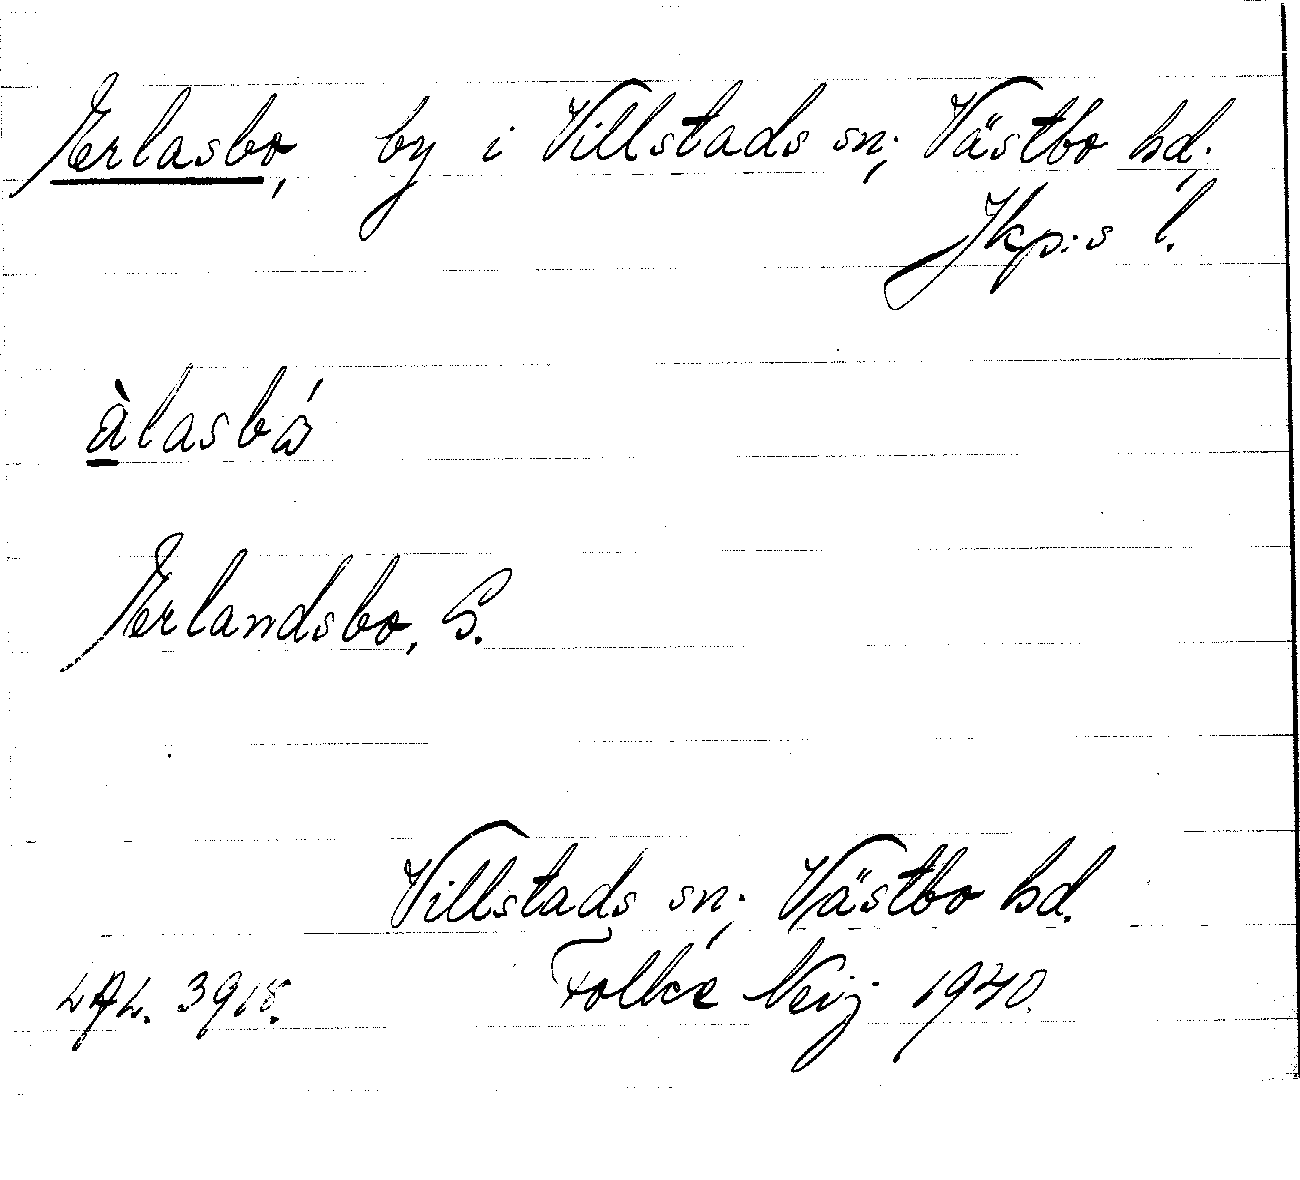 Erlasbo, by i Villstads sn; Västbo hd;
Jkp:s l.
àlasbá
Erlandsbo, G.
Villstads sn; Västbo hd.
LAL. 3918. Folke Neij 1940.